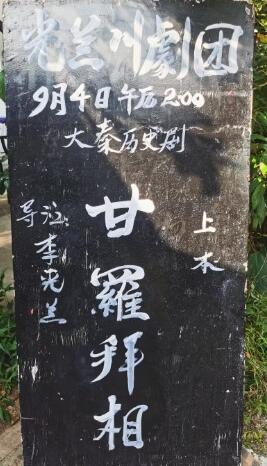 光兰川劇团
9月4日午后2:00
大秦历史剧
甘羅拜相
上本
导演李光兰